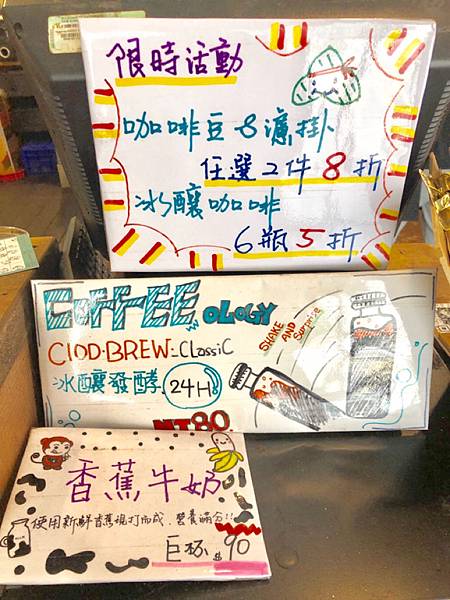 限時活動
咖啡豆&濾掛
任選2件8折
冰釀咖啡
6瓶5折
COFFEE OLOGY
ClOD·BREW-ClassiC
SHAKE AND Surprise
冰釀發酵 24H
NT80
香蕉牛奶
使用新鮮香蕉現打而成.營養滿分!!
巨杯 $90